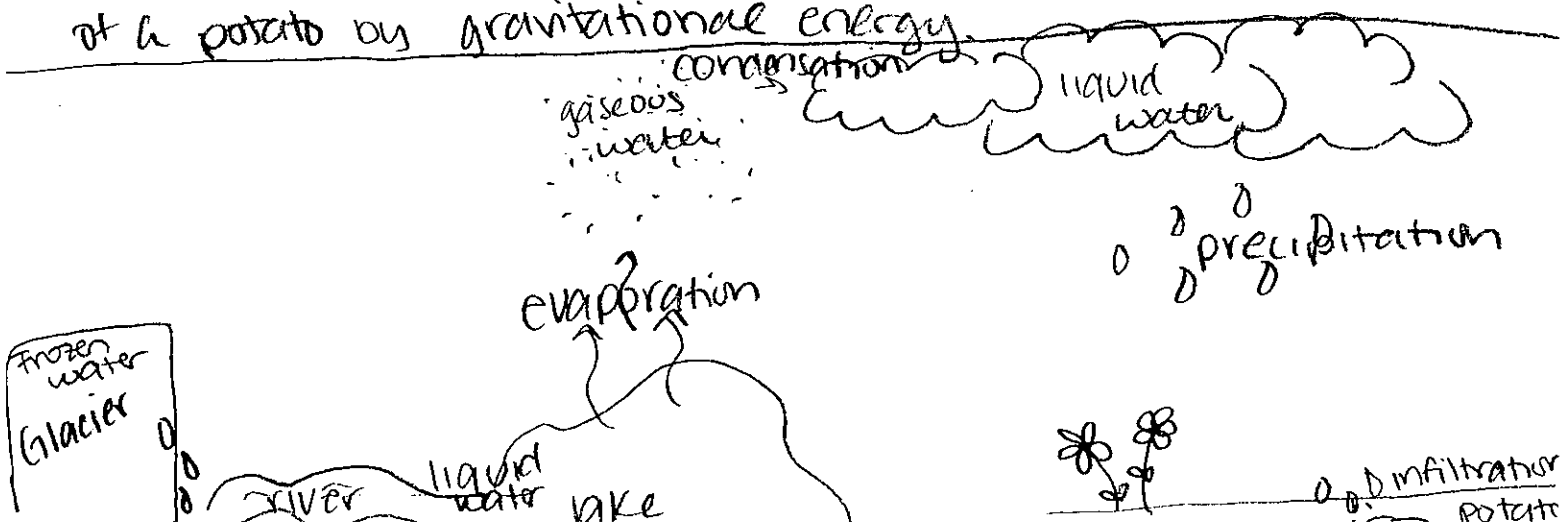 of a potato by gravitational energy.
condensation
gaseous
water
liquid
water
precipitation
evaporation
Frozen
water
Glacier
liquid
water
river
lake
infiltration
potato